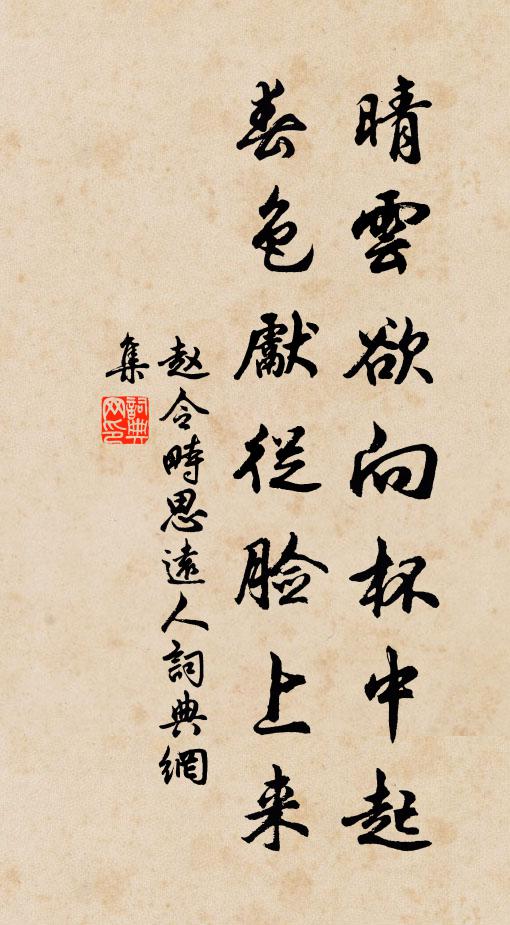 晴雲欲向杯中起
春色獻從臉上来
赵令時思遠人詞典網
集
詞典网印